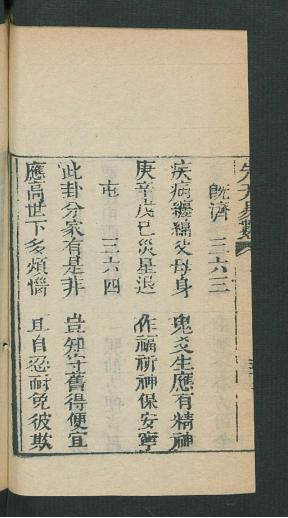 既濟 三六三
疾病纏綿父母身 鬼爻生應有精神
庚辛戊巳災星退 作福祈神保安寧
屯 三六四
此卦分家有是非 豈知守舊得便宜
應高世下多煩惱 且自忍耐免彼欺